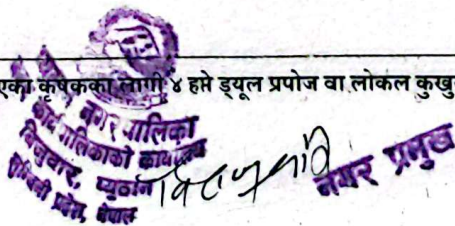 एका कृषकका लागी ४ हप्ते ड्यूल प्रपोज वा लोकल कुखु
नगरपालिका
कार्यपालिकाको कार्यालय
विजुवार, प्यूठान
लुम्बिनी प्रदेश, नेपाल
नगर प्रमुख